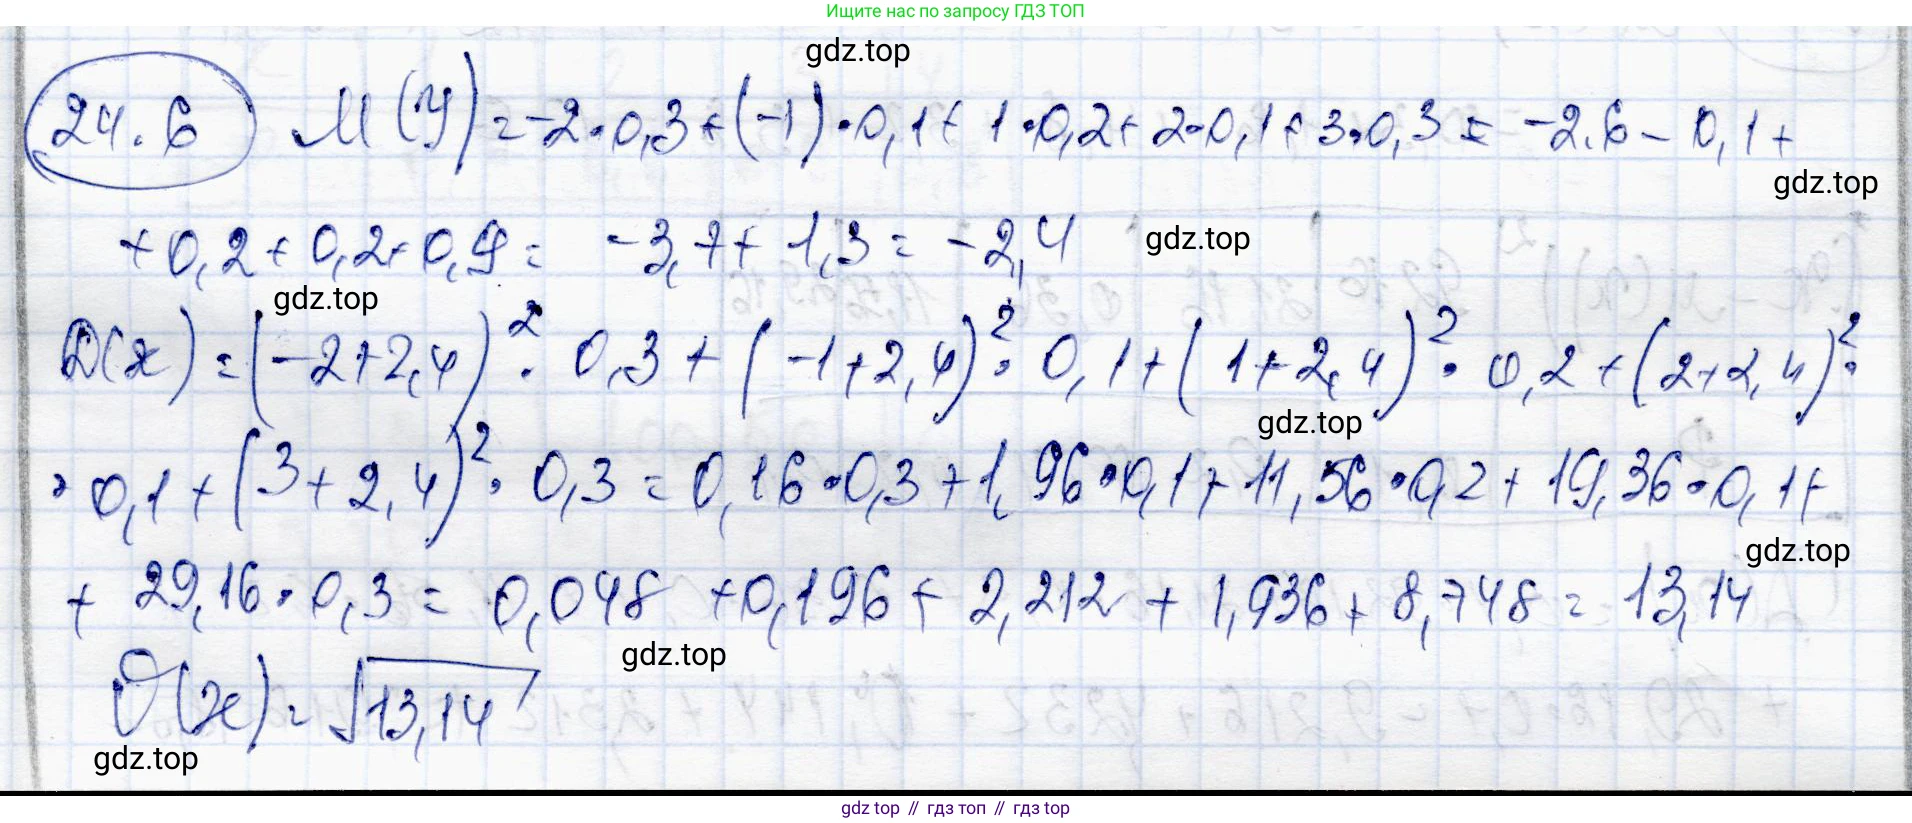 Ищите нас по запросу ГДЗ ТОП
gdz.top
24.6 M(y) = -2·0,3+(-1)·0,1+1·0,2+2·0,1+3·0,3 = -2.6-0,1+
gdz.top
+0,2+0,2+0,9= -3,7+1,3=-2,4
gdz.top
gdz.top
D(x)=(-2+2,4)²·0,3+(-1+2,4)²·0,1+(1+2,4)²·0,2+(2+2,4)²·
gdz.top
·0,1+(3+2,4)²·0,3=0,16·0,3+1,96·0,1+11,56·0,2+19,36·0,1+
gdz.top
+29,16·0,3=0,048+0,196+2,212+1,936+8,748=13,14
gdz.top
σ(x)=√13,14
gdz.top
gdz top // гдз топ // гдз top